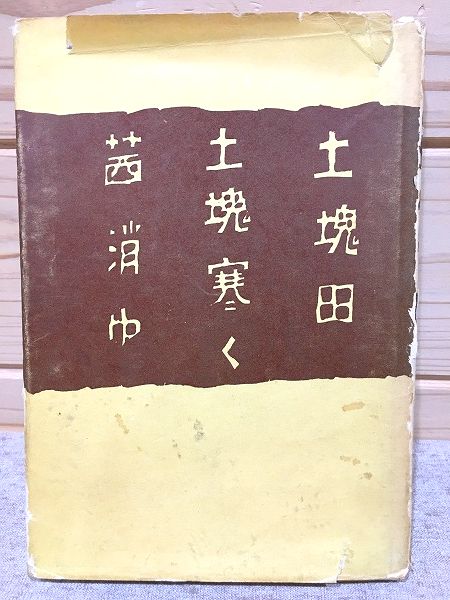 土塊田
土塊寒く
茜消ゆ